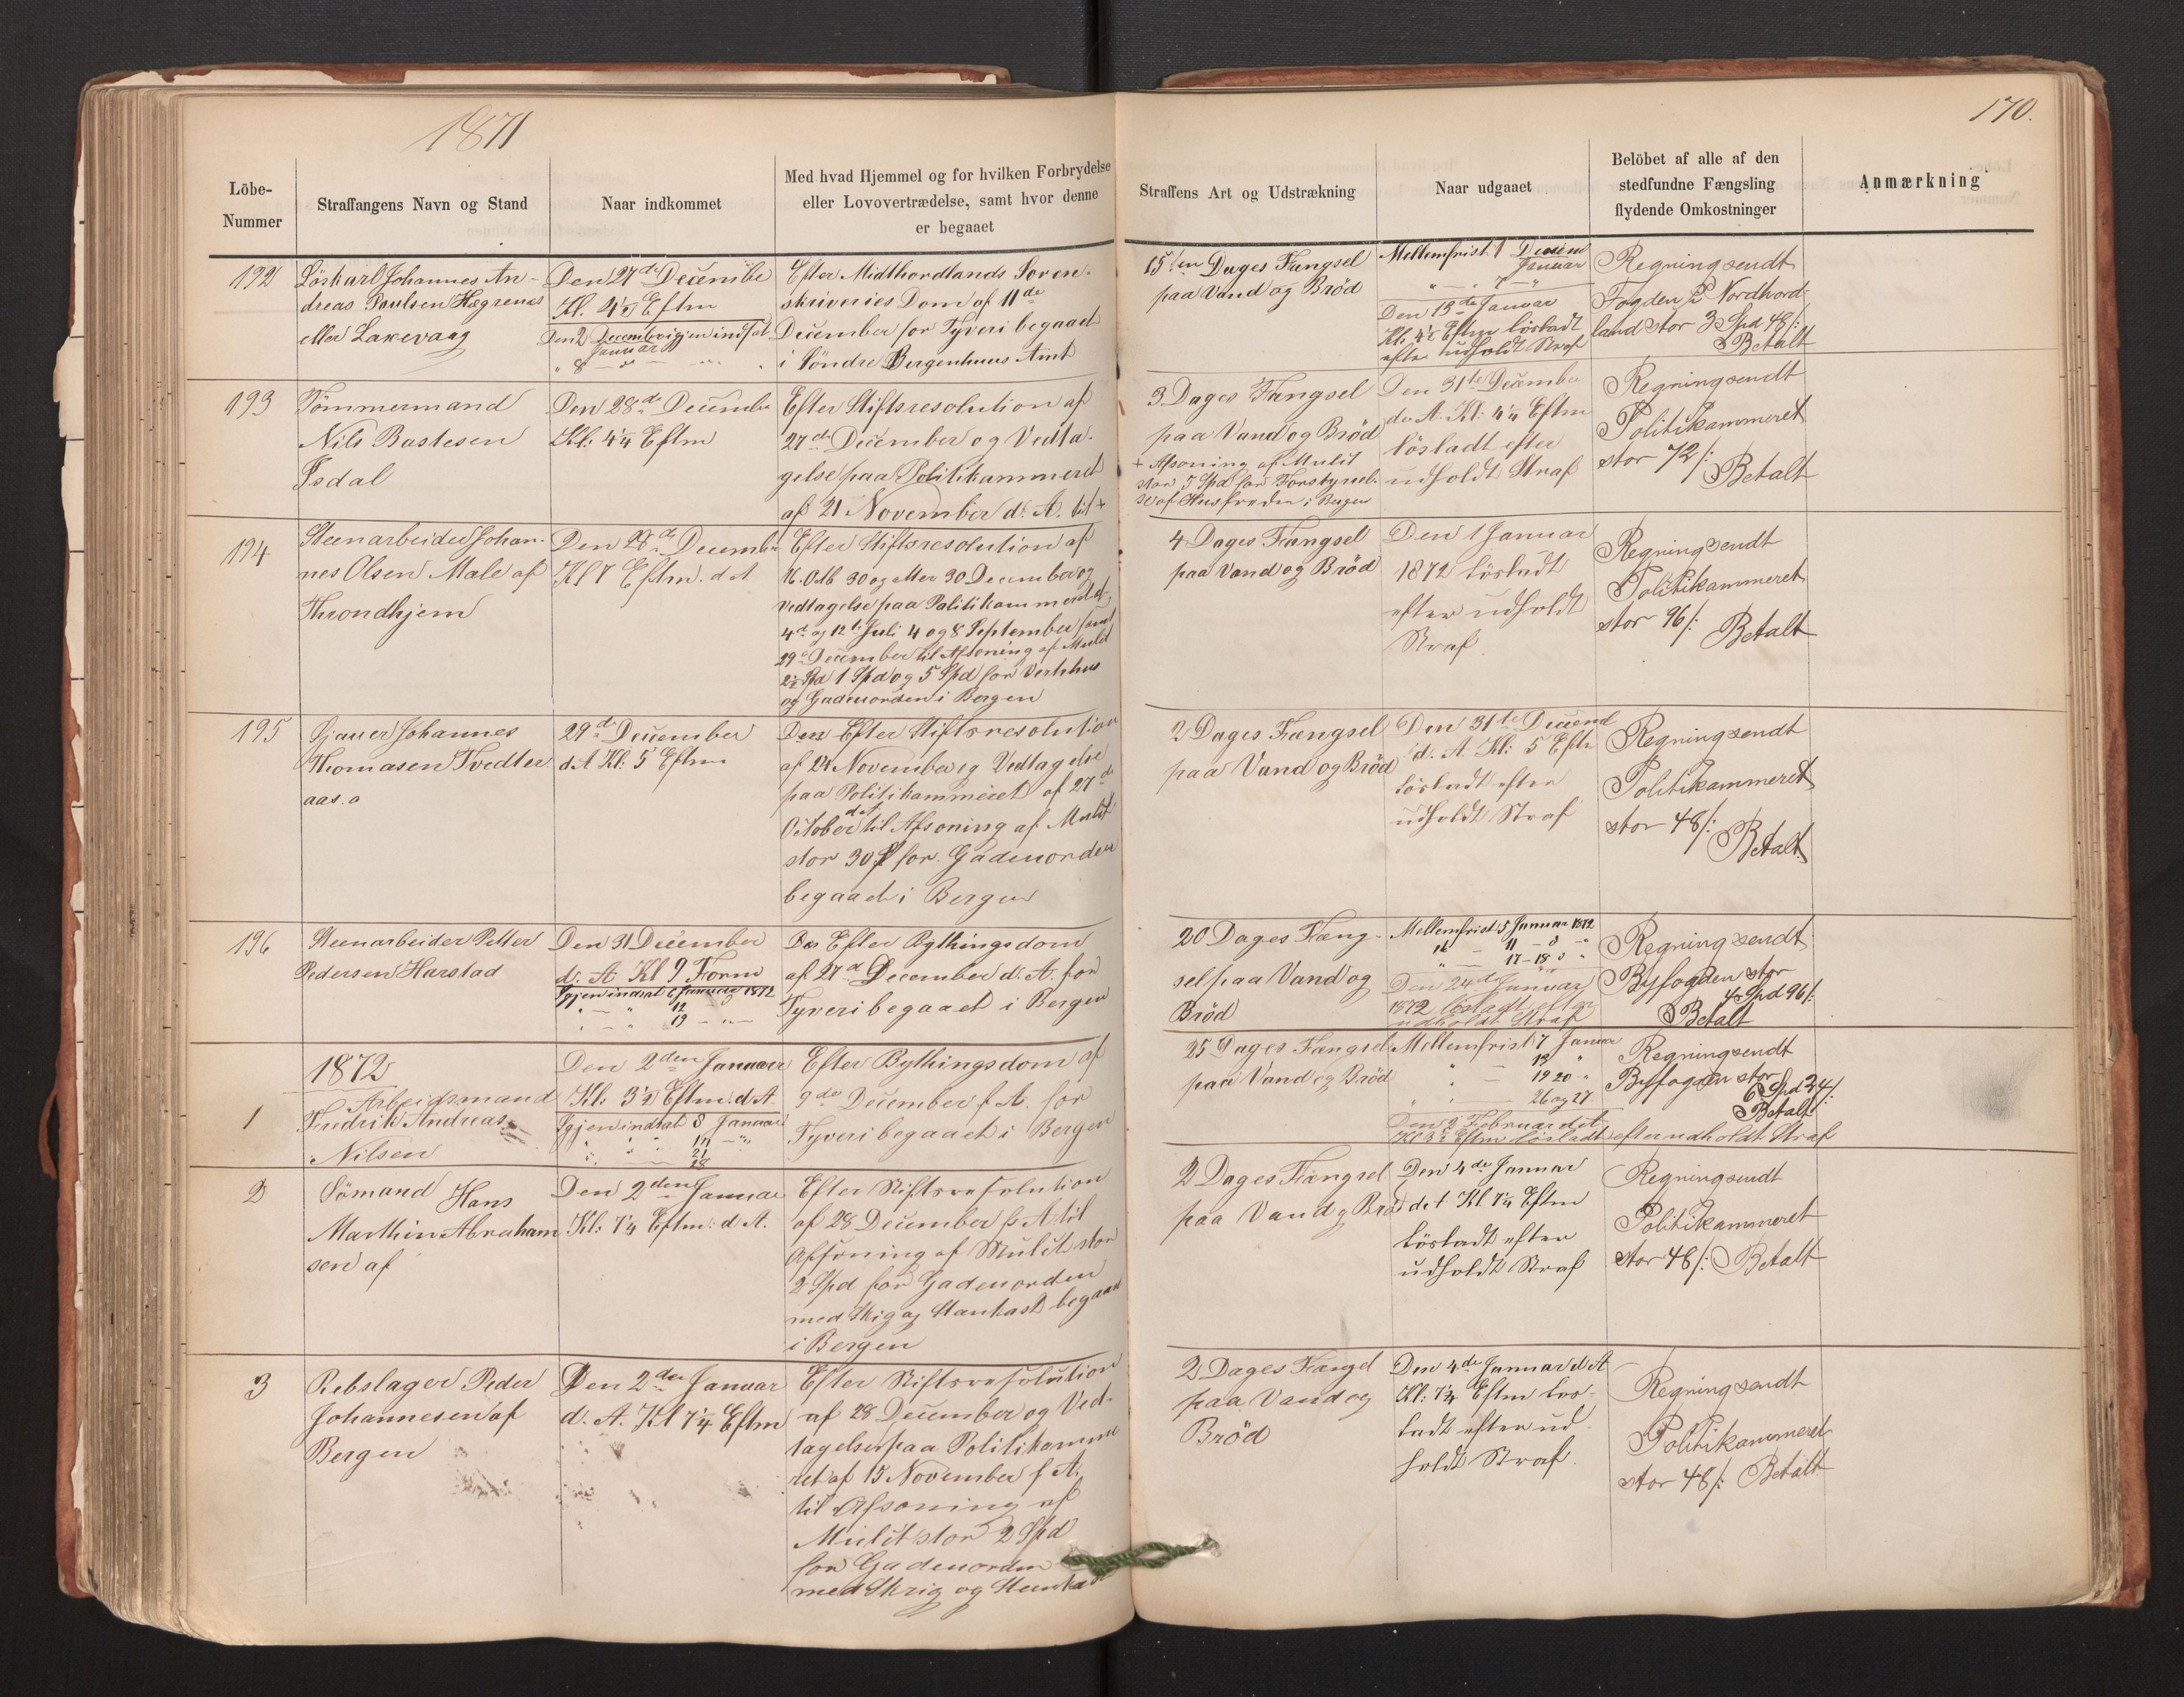 1871
170.
Löbe-
Nummer
Straffangens Navn og Stand
Naar indkommet
Med hvad Hjemmel og for hvilken Forbrydelse
eller Lovovertrædelse, samt hvor denne
er begaaet
Straffens Art og Udstrækning
Naar udgaaet
Belöbet af alle af den
stedfundne Fængsling
flydende Omkostninger
Anmærkning
192
Löskarl Johannes An-
dreas Paulsen Hægrenes
eller Lakevaag
Den 27de Decembe
Kl. 4½ Eftm
Den 2 December igjen indsat
Januar
" 8
Efter Midthordlands Soren-
skriveries Dom af 11de
December for Tyveri begaaet
i Söndre Bergenhuus Amt
15ten Dages Fængsel
paa Vand og Bröd
Mellemfrist 1 Decem
Januar
Den 13de Januar
Kl. 4½ Eftm löstadt
efter udholdt Straf
Regning sendt
Fogden i Nordhord-
land stor 3 Spd 48/:
Betalt
193
Tömmermand
Nils Bastesen
Isdal
Den 28de Decembe
Kl: 4¼ Eftm
Efter Stiftsresolution af
27de December og Vedta-
gelse paa Politikammeret
af 21 November d. A. til +
3 Dages Fængsel
paa Vand og Bröd
+ Afsoning af Mulct
stor 5 Spd for Forstyrrel-
se af Husfreden i Bergen
Den 31te Decembe
d. A. Kl: 4¼ Eftm
löstadt efter
udholdt Straf
Regning sendt
Politikammeret
stor 72/:
Betalt
194
Steenarbeider Johan-
nes Olsen Male af
Throndhjem
Den 28de Decembe
Kl 7 Eftm. d. A
Efter Stiftsresolution af
16. Octb 30 og atter 30 December og
Vedtagelse paa Politikammeret af
4de og 12te Juli 4 og 8 September samt
29de December til Afsoning af Mulct
2½ Spd 1 Spd og 5 Spd for Vertshus
og Gadeuorden i Bergen
4 Dages Fængsel
paa Vand og Bröd
Den 1 Januar
1872 löstadt
efter udholdt
Straf.
Regning sendt
Politikammeret
stor 96/:
Betalt
195
Johannes
Thomasen Tvedter
aas.
29de December
d. A Kl: 5 Eftm
Den Efter Stiftsresolution
af 24 November og Vedtagelse
paa Politikammeret af 27de
October d. A. til Afsoning af Mulct
stor 30 for Gadeuorden
begaaet i Bergen
2 Dages Fængsel
paa Vand og Bröd
Den 31te Decemb
d. A. Kl: 5 Eftm
löstadt efter
udholdt Straf
Regning sendt
Politikammeret
stor 48/:
Betalt
196
Steenarbeider Petter
Pedersen Harstad
Den 31 December
d. A. Kl 9 Form
Igjen indsat 6 Januar 1872
" — " 12 — "
" — " 19 — " —
Efter Bythingsdom
af 27de December d. A. for
Tyveri begaaet i Bergen
20 Dages Fæng-
sel paa Vand og
Bröd
Mellemfrist: 5 Januar 1872
" — 11 —
" — 17-18
Den 24de Januar
1872 löstadt efter
udholdt Straf
Regning sendt
Byfogden stor
4 Spd 96/:
Betalt
1872
1
Arbeidsmand
Fredrik Andreas
Nilsen
Den 2den Januar
Kl: 3½ Eftm. d. A.
Igjen indsat 8 Januar
" " 14 — "
21
28
Efter Bythingsdom af
9de December f. A. for
Tyveri begaaet i Bergen
25 Dages Fængsel
paa Vand og Bröd
Mellemfrist 7 Januar
13 "
19 20 "
26 og 27
Den 2 Februar d. A.
Kl 3½ Eftm löstadt efter udholdt Straf
Regning sendt
Byfogden stor
6 Spd 24/:
Betalt
2
Sömand Hans
Marthin Abraham
sen af
Den 2den Januar
Kl: 7¼ Eftm: d. A.
Efter Stiftsresolution
af 28 December f. A til
Afsoning af Mulct stor
2 Spd for Gadeuorden
med Skrig og Stenkast begaaet
i Bergen
2 Dages Fængsel
paa Vand og Bröd
Den 4de Januar
d. A Kl. 7¼ Eftm
löstadt efter
udholdt Straf
Regning sendt
Politikammeret
stor 48/: Betalt
3
Rebslager Peder
Johannesen af
Bergen
Den 2den Januar
d. A. Kl 7¼ Eftm
Efter Stiftsresolution
af 28 December og Ved-
tagelse paa Politikamme
ret af 15 November f. A.
til Afsoning af
Mulct stor 2 Spd
for Gadeuorden
med Skrig og Steenkast
2 Dages Fængsel
paa Vand og
Bröd
Den 4de Januar d. A
Kl: 7¼ Eftm lös-
ladt efter ud-
holdt Straf.
Regning sendt
Politikammeret
stor 48/: Betalt